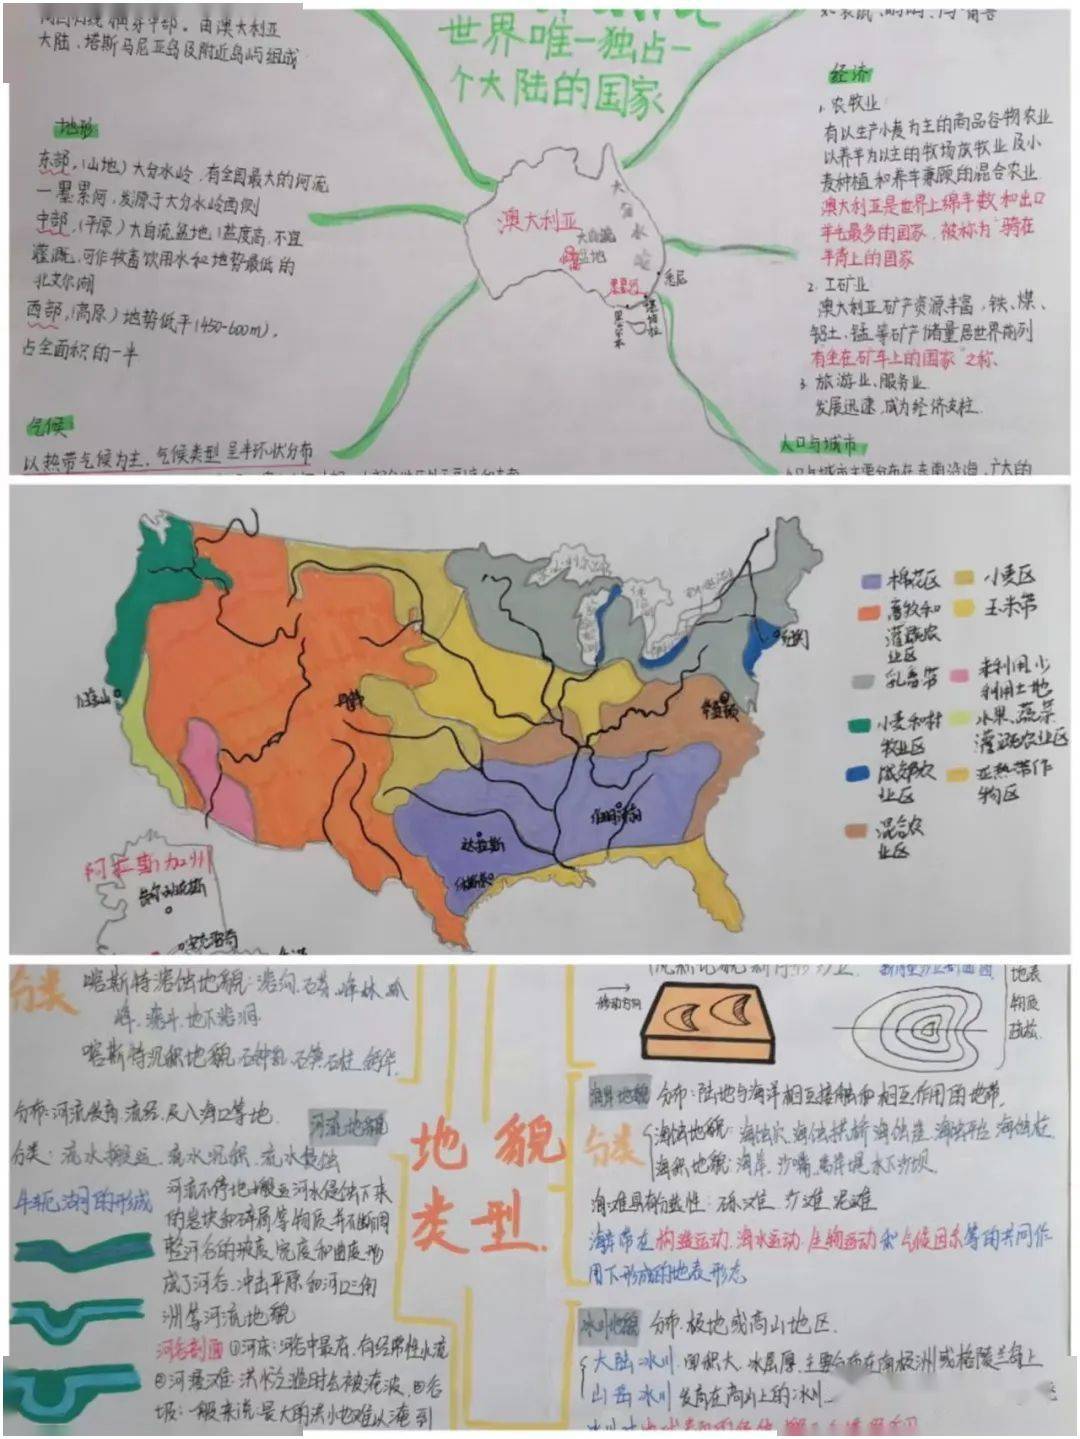 大陆、塔斯马尼亚岛及附近岛屿组成
世界唯一独占一
个大陆的国家
地形
东部，(山地)大分水岭，有全国最大的河流
一墨累河，发源于大分水岭西侧
中部，(平原)大自流盆地(盐度高，不宜
灌溉，可作牧畜饮用水和地势最低的
北艾尔湖
西部，(高原)地势低平(450-600m)，
占全面积的一半
气候
以热带气候为主，气候类型呈半环状分布
澳大利亚
大自流
盆地
大
分
水
岭
墨累河
悉尼
堪培拉
墨尔本
经济
1. 农牧业：
有以生产小麦为主的商品谷物农业
以养羊为以主的牧场放牧业及小
麦种植和养羊兼顾的混合农业
澳大利亚是世界上绵羊数和出口
羊毛最多的国家，被称为“骑在
羊背上的国家
2. 工矿业
澳大利亚矿产资源丰富，铁、煤、
铝土、锰等矿产储量居世界前列
有坐在矿车上的国家”之称、
3. 旅游业、服务业
发展迅速，成为经济支柱.
人口与城市
棉花区
小麦区
畜牧和
灌溉农
业区
玉米带
乳畜带
未利用、少
利用土地
小麦和林
牧业区
水果、蔬菜
灌溉农业区
城郊农
业区
亚热带作
物区
混合农
业区
旧金山
丹佛
达拉斯
休斯敦
伯明翰
纽约
阿拉斯加州
分类
喀斯特溶蚀地貌：溶沟、石芽、峰林、孤
峰、漏斗、地下溶洞
喀斯特沉积地貌：石钟乳、石笋、石柱、钙华
分布：河流发育、流经、及入海口等地.
河流地貌
分类：流水搬运、流水沉积、流水侵蚀
牛轭湖的形成
河流不停地搬运河水侵蚀下来
的岩块和碎屑等物质并不断调
整河谷的坡度、宽度和曲度，形
成了河谷、冲击平原和河口三角
洲等河流地貌
河谷剖面 ①河床：河谷中最底，有经常性水流
②河漫滩：洪水泛滥时会被淹没，③谷
坡：一般来说最大的洪水也难以淹到
地貌
类型.
移动方向
地表
物质
疏松
海岸地貌 分布：陆地与海洋相互接触和相互作用的地带.
分类
海蚀地貌：海蚀穴、海蚀拱桥、海蚀崖、海蚀平台、海蚀柱.
海积地貌：海岸、沙嘴、离岸堤、水下沙坝
海滩具有物性：砾滩、沙滩、泥滩
海岸带在构造运动、海水运动、生物运动和气候因素等的共同作
用下形成的地表形态
冰川地貌 分布：极地或高山地区.
大陆冰川：面积大、冰层厚，主要分布在南极洲或格陵兰岛上
山岳冰川：发育在高山上的冰川